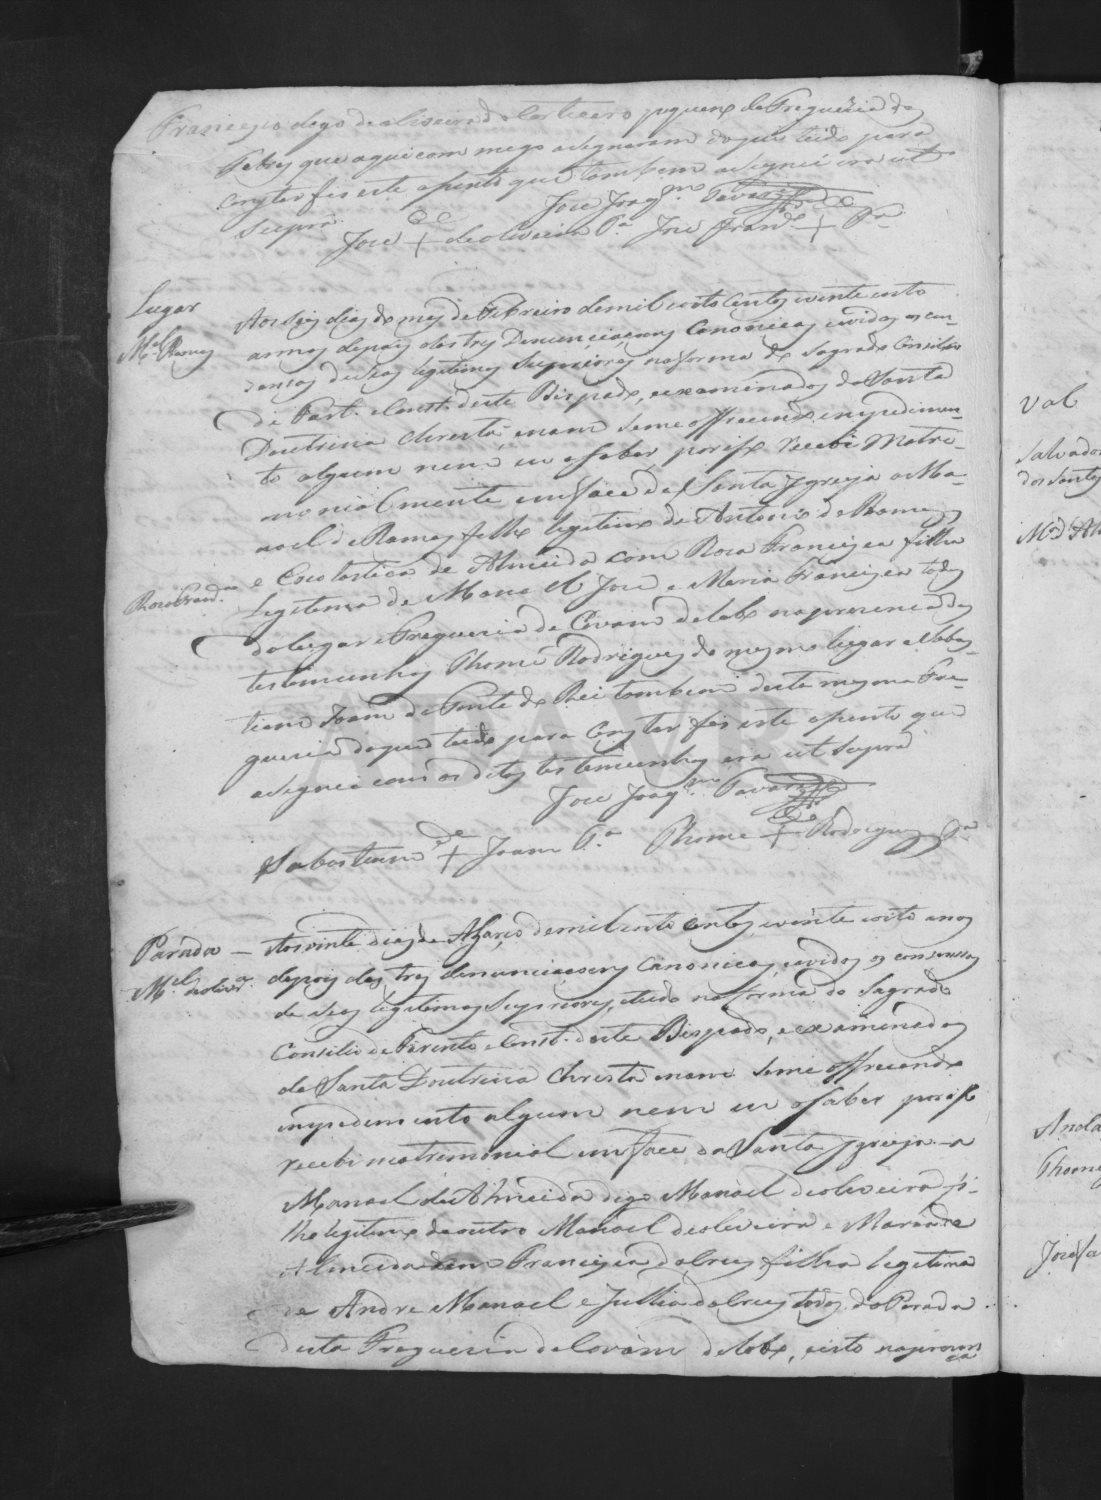 Francisco digo de oliveira do Carteiro pequeno da Freguesia de
que aqui comigo asignaram do que tudo para
constar fis este asento que tambem asignei era ut
supra
Joze Joaqm. Tavares
Joze + de oliveira Ta. Joze Franco + Ta.
Lugar
Mel. Ramos
Aos seis dias do mes de Febreiro de mil oito centos vinte oito
annos depois das tres Denunciaçoens Canonicas ouvidos os con-
sensos de seos legitimos Superiores na forma do Sagrado Consilio
de Part. e Const. deste Bispado, e examinados da Santa
Doutrina Christã, e nam se me offrecendo empedimen-
to algum nem eu o saber por iso recebi Matri-
monialmente em face da Santa Igreja a Ma-
noel de Ramos filho legitimo de Antonio de Ramos
e Escolastica de Almeida com Rosa Francisca filha
Rosa Francca.
legitima de Manoel Joze e Maria Francisca todos
do lugar e Freguesia de Covam do lobo na presença das
testemunhas Thomé Rodrigues do mesmo lugar e Sebas-
tiam Joam da Ponte do Rei tambem desta mesma Fre-
guesia do que tudo para constar fis este asento que
asignei com os ditos testemunhas era ut supra
Joze Joaqm. Tavares
Sabastiam de + Joam Ta. Thome + Rodrigues Ta.
Parada — Aos vinte dias de Março de mil oito centos vinte oito anos
Mel. de olivra. depois das tres denunciaçoens Canonicas, ouvidos os consensos
de seos legitimos Superiores, e tudo na forma do Sagrado
Consilio de Tirento e Const. deste Bispado, e examinados
da Santa Doutrina Christã e nam se me offrecendo
empedimento algum nem eu o saber por iso
recebi matrimonial em face da Santa Igreja a
Manoel de Almeida digo Manoel de oliveira fi-
lho legitimo de outro Manoel de oliveira e Maria de
Almeida com Francisca da Crus filha legitima
de Andre Manoel e Jullia da Crus todos da Parada
desta Freguesia de Covam do lobo, e isto na presen
ça
Val
Salvador
dos Santos